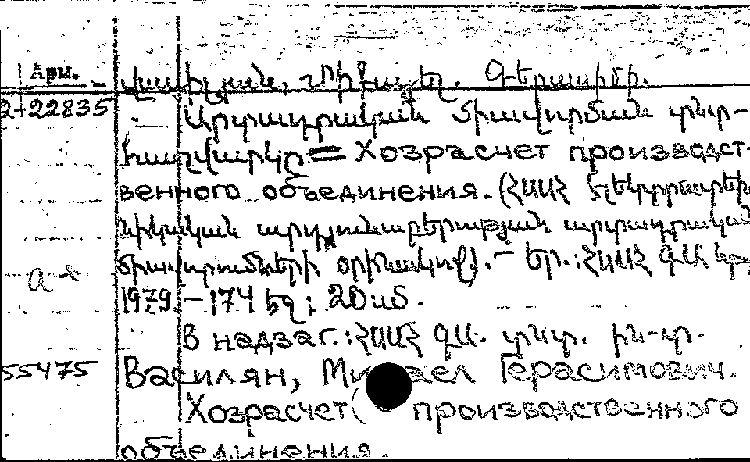 Арм.
Վասիլյան, Միքայել Գերասիմի.
2-22835
Արտադրական միավորման տնտ-
հաշվարկը = Хозрасчет производст-
венного объединения. (ՀՍՍՀ էլեկտրատեխ-
նիկական արդյունաբերության արտադրական
միավորումների օրինակով). - Եր.: ՀՍՍՀ ԳԱ
1979. - 174 էջ; 20 սմ.
В надзаг.: ՀՍՍՀ ԳԱ. տնտ. ին-տ.
55475
Василян, Михаел Герасимович.
Хозрасчет производственного
объединения.